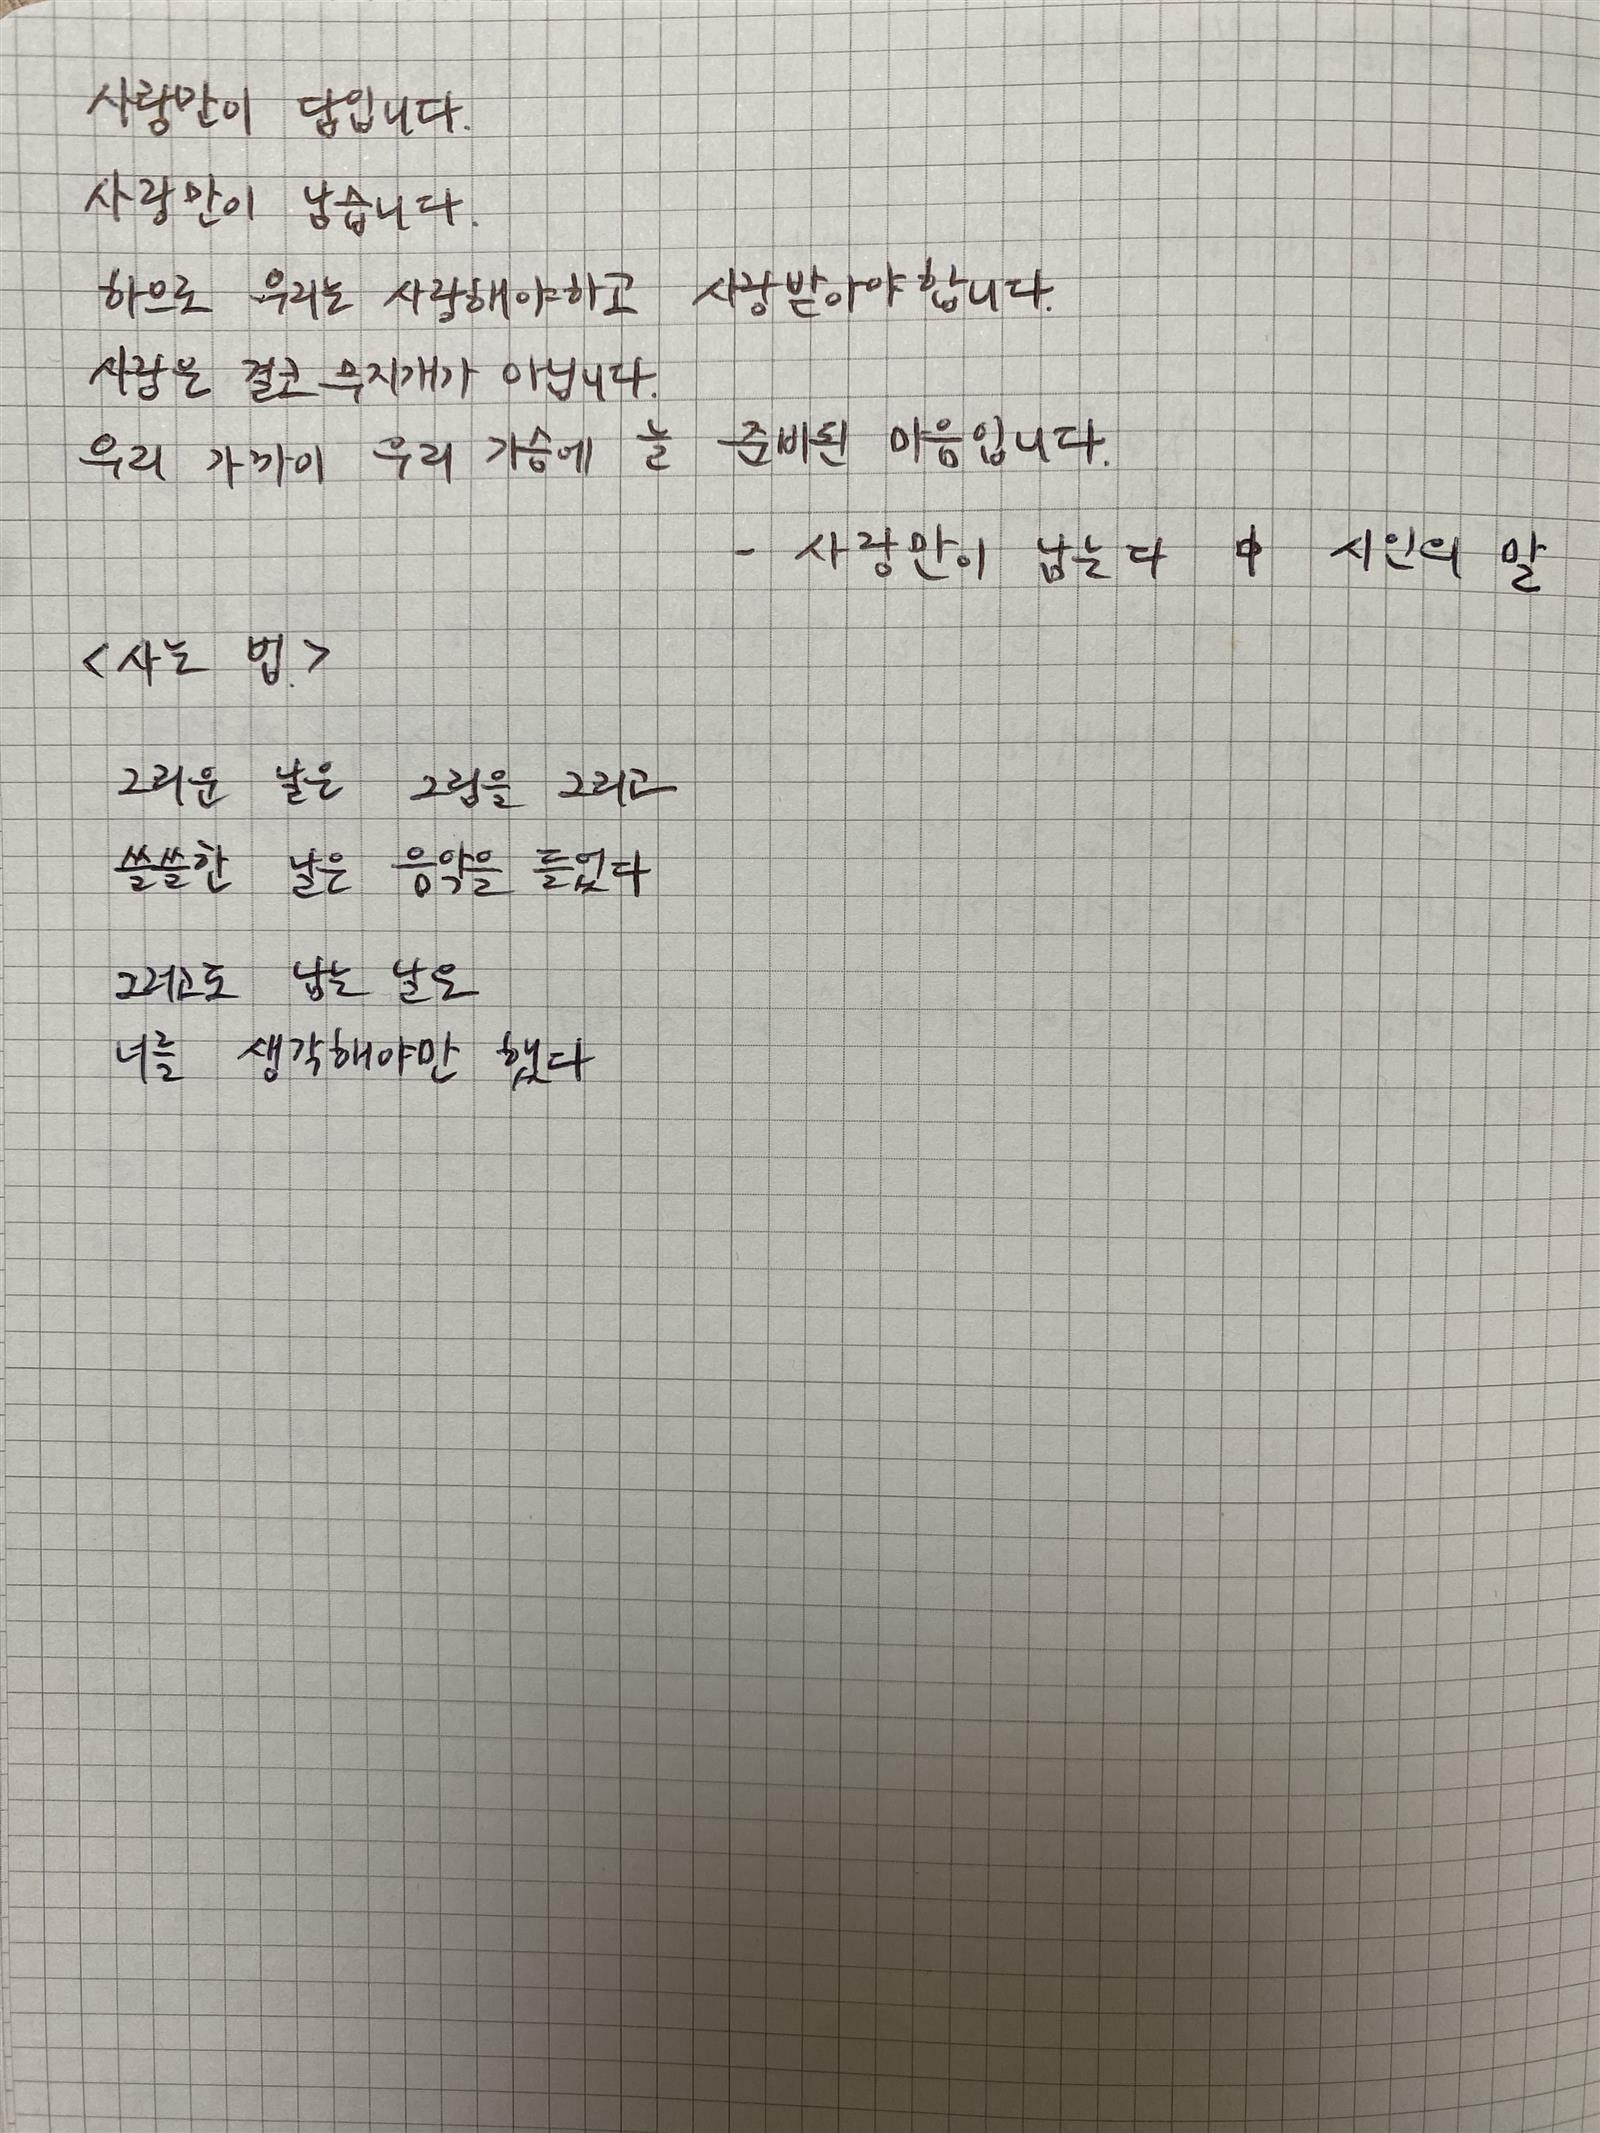 사랑만이 답입니다.
사랑만이 남습니다.
하으로 우리는 사랑해야하고 사랑받아야합니다.
사랑은 결코 무지개가 아닙니다.
우리 가까이 우리 가슴에 늘 준비된 마음입니다.
- 사랑만이 남는다 中 시인의 말
<사는 법.>
그리운 날은 그림을 그리고
쓸쓸한 날은 음악을 들었다
그러고도 남는 날은
너를 생각해야만 했다